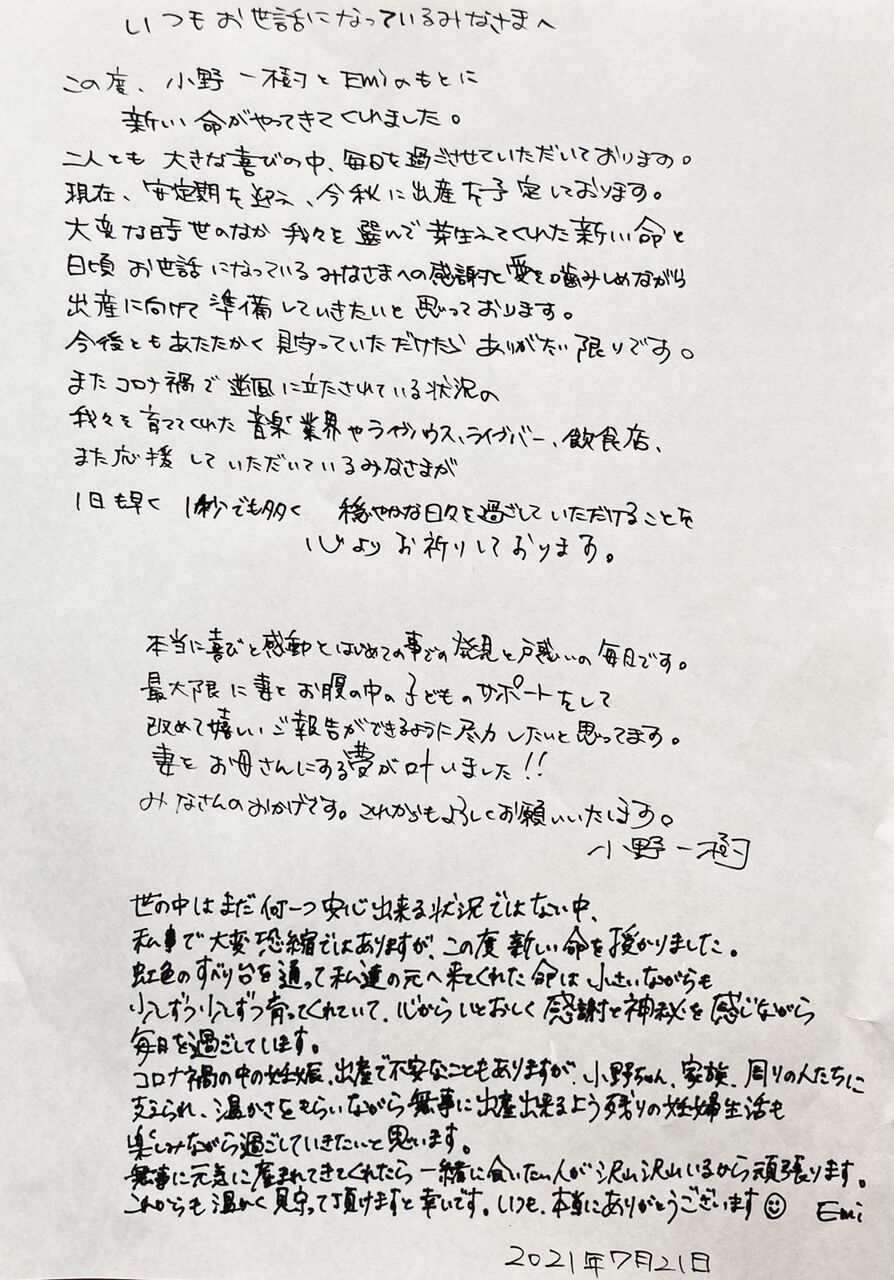 いつもお世話になっているみなさまへ
この度、小野一樹とEmiのもとに
新しい命がやってきてくれました。
二人とも大きな喜びの中、毎日を過ごさせていただいております。
現在、安定期を迎え、今秋に出産を予定しております。
大変な時世のなか我々を選んで芽生えてくれた新しい命と
日頃お世話になっているみなさまへの感謝と愛を噛みしめながら
出産に向けて準備していきたいと思っております。
今後ともあたたかく見守っていただけたらありがたい限りです。
またコロナ禍で逆風に立たされている状況の
我々を育ててくれた音楽業界やライブハウス、ライブバー、飲食店、
また応援していただいているみなさまが
1日も早く 1秒でも多く 穏やかな日々を過ごしていただけることを
心よりお祈りしております。
本当に喜びと感動とはじめての事での発見と戸惑いの毎日です。
最大限に妻とお腹の中の子どものサポートをして
改めて嬉しいご報告ができるように尽力したいと思ってます。
妻をお母さんにする夢が叶いました!!
みなさんのおかげです。これからもよろしくお願いいたします。
小野一樹
世の中はまだ何一つ安心出来る状況ではない中、
私事で大変恐縮ではありますが、この度新しい命を授かりました。
虹色のすべり台を通って私達の元へ来てくれた命は小さいながらも
少しずつ少しずつ育ってくれていて、心からいとおしく感謝と神秘を感じながら
毎日を過ごしています。
コロナ禍の中の妊娠、出産で不安なこともありますが、小野ちゃん、家族、周りの人たちに
支えられ、温かさをもらいながら無事に出産出来るよう残りの妊婦生活も
楽しみながら過ごしていきたいと思います。
無事に元気に産まれてきてくれたら一緒に会いたい人が沢山沢山いるから頑張ります。
これからも温かく見守って頂けますと幸いです。いつも、本当にありがとうございます☺ Emi
2021年7月21日